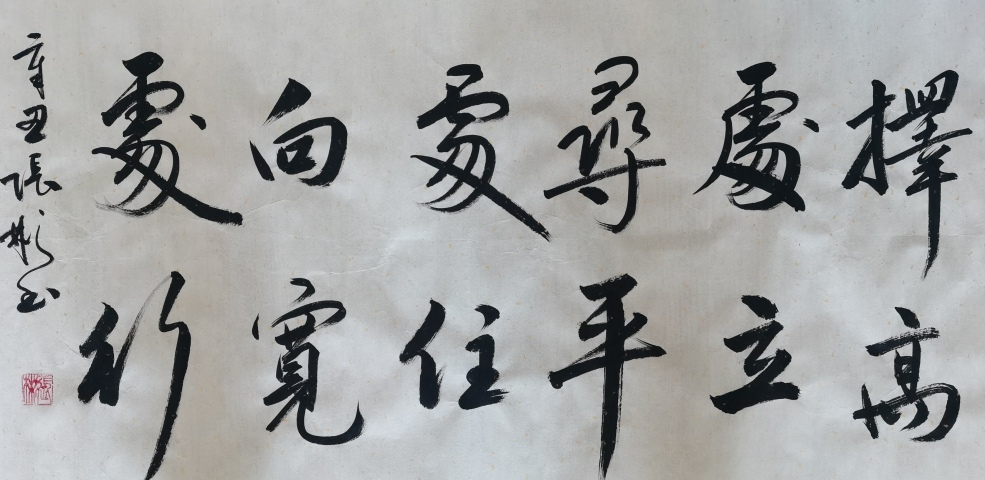 擇高
處立
尋平
處住
向寬
處行
辛丑張彬书